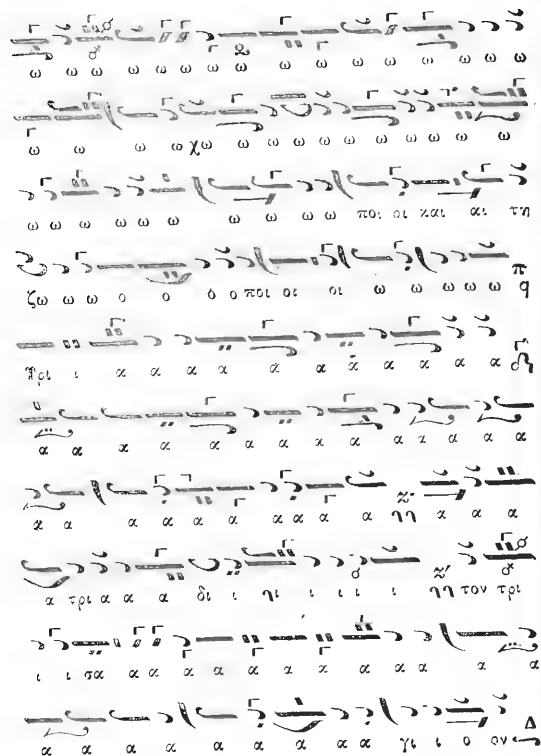 ω ω ω ω ω ω ω ω ω ω ω ω ω ω ω
ω ω ω ω χω ω ω ω ω ω ω ω ω ω
ω ω ω ω ω ω ω ω ω ω ποι οι και αι τη
ζω ω ω ο ο ο ο ποι οι οι ω ω ω ω ω π q
Τρι ι α α α α α α α α α α α
α α α α α α α α α α α α α
α α α α α α α α α α ηη α α α
α τρι α α α α δι ι ηι ι ι ι ι ηη τον τρι
ι ι σα α α α α α α α α α α α α α
α α α α α α α α α α α γι ι ο ον Δ